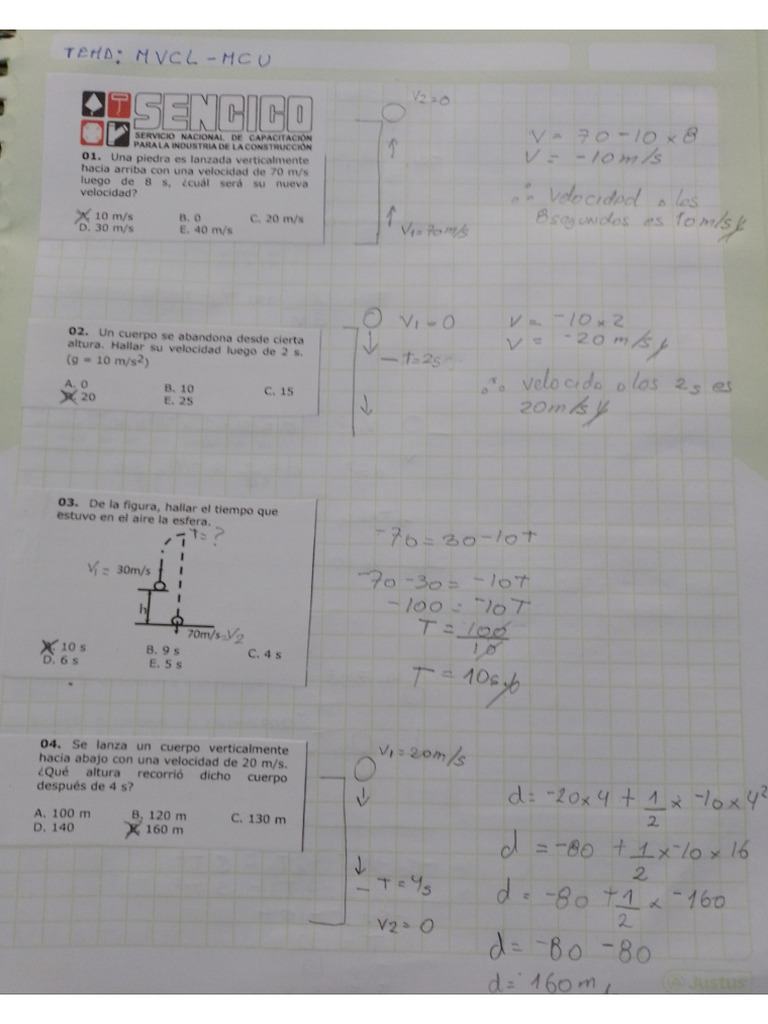 TEMA: MVCL - MCU
SENCICO
SERVICIO NACIONAL DE CAPACITACIÓN
PARA LA INDUSTRIA DE LA CONSTRUCCIÓN
01. Una piedra es lanzada verticalmente
hacia arriba con una velocidad de 70 m/s
luego de 8 s, ¿cuál será su nueva
velocidad?
A. 10 m/s B. 0 C. 20 m/s
D. 30 m/s E. 40 m/s
V2=0
V1=70m/s
V = 70 - 10 x 8
V = -10 m/s
∴ velocidad a los
8 segundos es 10 m/s
02. Un cuerpo se abandona desde cierta
altura. Hallar su velocidad luego de 2 s.
(g = 10 m/s²)
A. 0 B. 10 C. 15
D. 20 E. 25
V1 = 0
T=2s
V = -10 x 2
V = -20 m/s
∴ velocida a los 2s es
20m/s
03. De la figura, hallar el tiempo que
estuvo en el aire la esfera.
T=?
V1 = 30m/s
h
70m/s=V2
A. 10 s B. 9 s C. 4 s
D. 6 s E. 5 s
-70 = 30 - 10T
-70 - 30 = -10T
-100 = -10T
T = 100
10
T = 10s
04. Se lanza un cuerpo verticalmente
hacia abajo con una velocidad de 20 m/s.
¿Qué altura recorrió dicho cuerpo
después de 4 s?
A. 100 m B. 120 m C. 130 m
D. 140 E. 160 m
V1 = 20m/s
T = 4s
V2 = 0
d = -20 x 4 + 1/2 x -10 x 4²
d = -80 + 1/2 x -10 x 16
d = -80 + 1/2 x -160
d = -80 - 80
d = 160 m
Justus